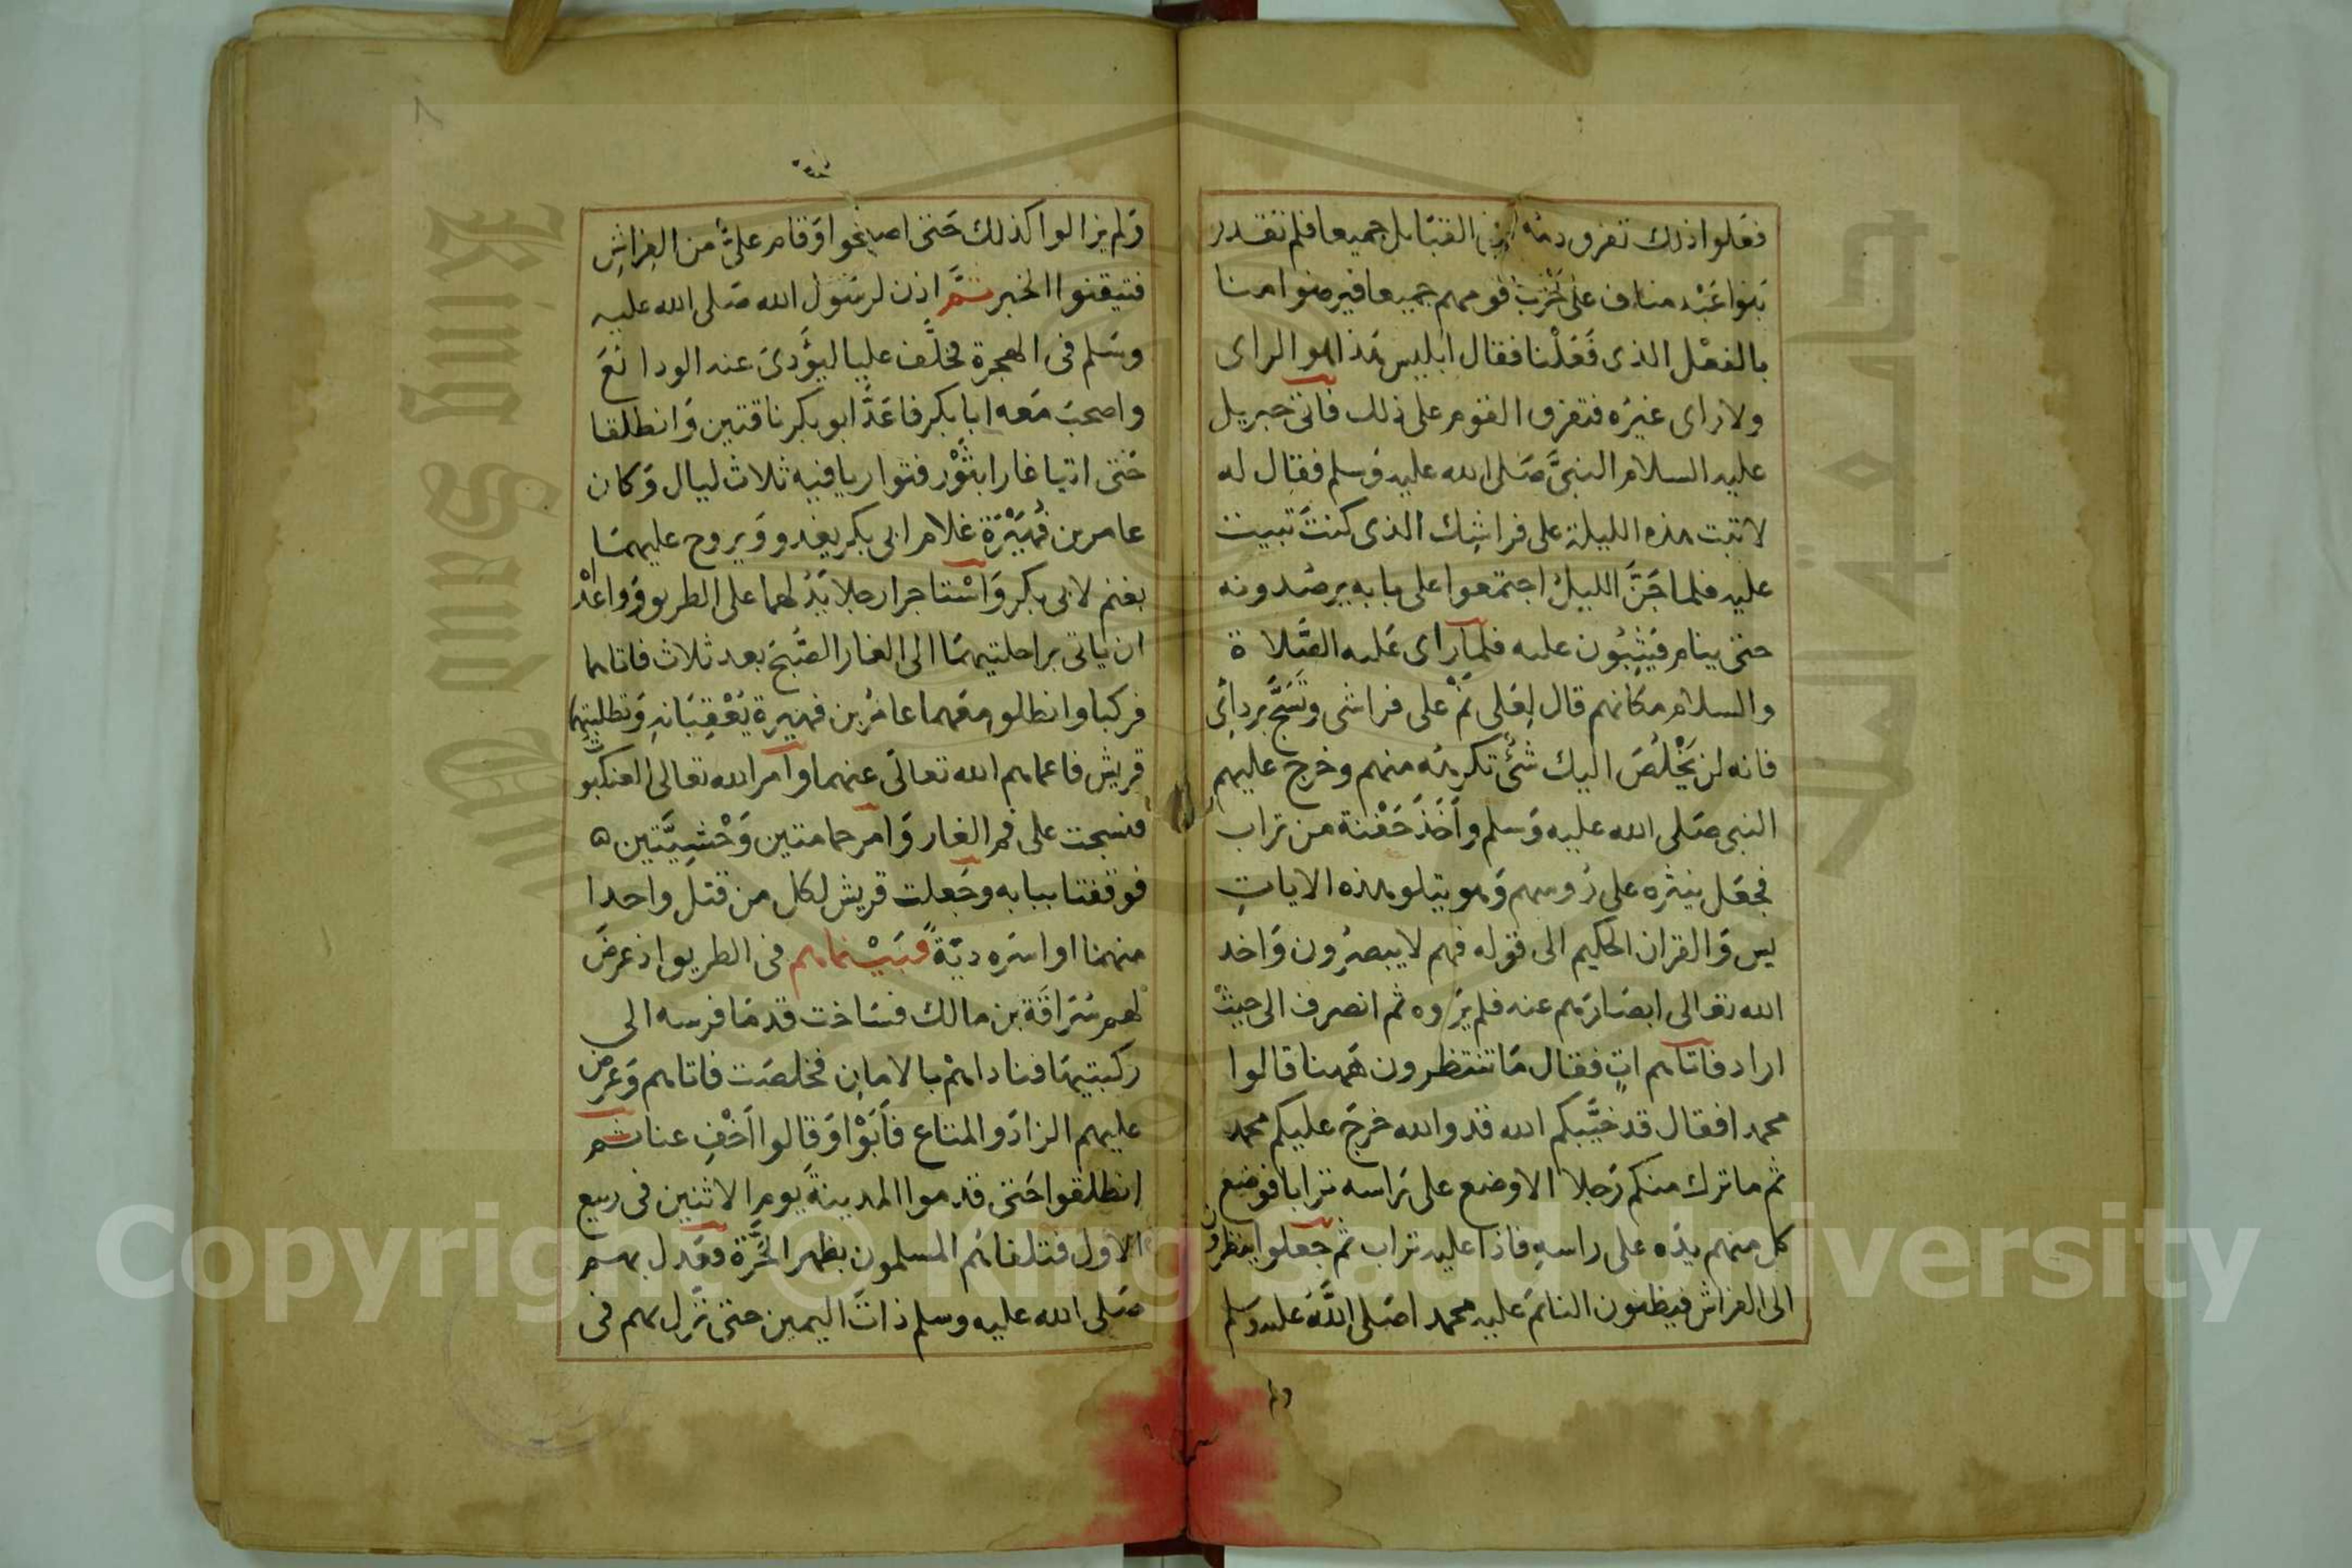 فعلوا ذلك تفرق دمه في القبايل جميعا فلم تقدر
بنوا عَبْد مناف على حَرْب قومهم جميعا فيرضوا منا
بالفعْل الذى فَعَلْنا فقال ابليس هذا هو الراى
ولا راى غيرَه فتفرق القوم على ذلك فاتى جبريل
عليه السلام النبىَّ صَلى الله عليه وَسلم فقال له
لا تبت هذه الليلة على فراشِك الذى كنتَ تبيت
عليه فلما جَنَّ الليلُ اجتمعوا على بابه يرصُدونه
حتى ينام فيَثِبُون عليه فلما رَاى عَليه الصَّلاة
والسلام مَكانهم قال لِعَلى نَمْ على فراشى وتَسَجَّ بردائِى
فانه لن يَخْلُصَ اليك شئ تكرهُه منهم وخرج عليهم
النبى صَلى الله عليه وَسلم وأخَذَ حَفْنة من تراب
فجعَل ينثره على رُوسهم وَهو يتلو هذه الاياتِ
يس وَالقران الحكيم الى قوله فهم لا يبصرُون وَاخذ
الله تعالى ابصَارَهم عنه فلم يَرَوه ثم انصرف الى حيثُ
اراد فاتاهم اتٍ فقال مَا تنتظرون هَهنا قالوا
محمدا فقال قد خيَّبكم الله قد والله خرجَ عليكم محمد
ثم ما ترك منكم رَجلا الا وضع على رَاسه ترابا فوضع
كل منهم يدَه على راسهِ فاذا عليه تراب ثم جعَلوا ينظرون
الى الفراش فيظنون النائمَ عليه محمدا صَلى اللَّهُ عليه وسلم
وَلم
وَلم يزالوا كذلك حَتى اصبَحوا وَقام علىٌّ من الفِراشِ
فتيقنوا الخبر ثمَّ اذن لرسَول الله صَلى الله عليه
وسَلم فى الهجرة فخلَّف عليا ليؤَدىَ عنه الودائعَ
واصحبَ مَعه ابا بكر فاعَدَّ ابو بكر ناقتين وَانطلقا
حَتى اتيا غارا بثَوْر فتواريا فيه ثلاث ليال وَكان
عامر بن فُهَيْرَة غلام ابى بكر يغدو وَيروح عليهمَا
بغنم لابى بكر وَاسْتاجرا رجلا يَدُلهما على الطريق وَواعَدْ
ان ياتى براحلتيهمَا الى الغار الصُّبحَ بعد ثلاث فاتاهما
فركبا وانطلق مَعهما عامرُ بن فهيرة يُعْقِبَانهِ وَتطلَبَتهما
قريش فاعماهم الله تعالى عنهما وامر الله تعالى العنكبُو
فنسجت على فم الغار وَامر حمامتين وَحْشِيَّتين ه
فوقفتا ببابه وجَعلت قريش لكل من قتل واحدا
منهما او اسَره ديَةً فبَيْنماهم فى الطريق اذ عرضَ
لهم سُرَاقَة بن مالك فسَاخت قدمَا فرسه الى
ركبتيهَا فناداهمْ بالامانِ فخلصَت فاتاهم وَعَرض
عليهم الزادَ والمتاع فأبَوْا وَقالوا أخْفِ عنا ثم
انطلقوا حَتى قدموا المدينةَ يوم الاثنين فى ربيع
الاول فتلقاهُم المسلمون بظهر الحَرَّة فعَدل بهم
صَلى الله عليه وسلم ذاتَ اليمين حتى نَزل بهم فى
Copyright © King Saud University
King Saud University